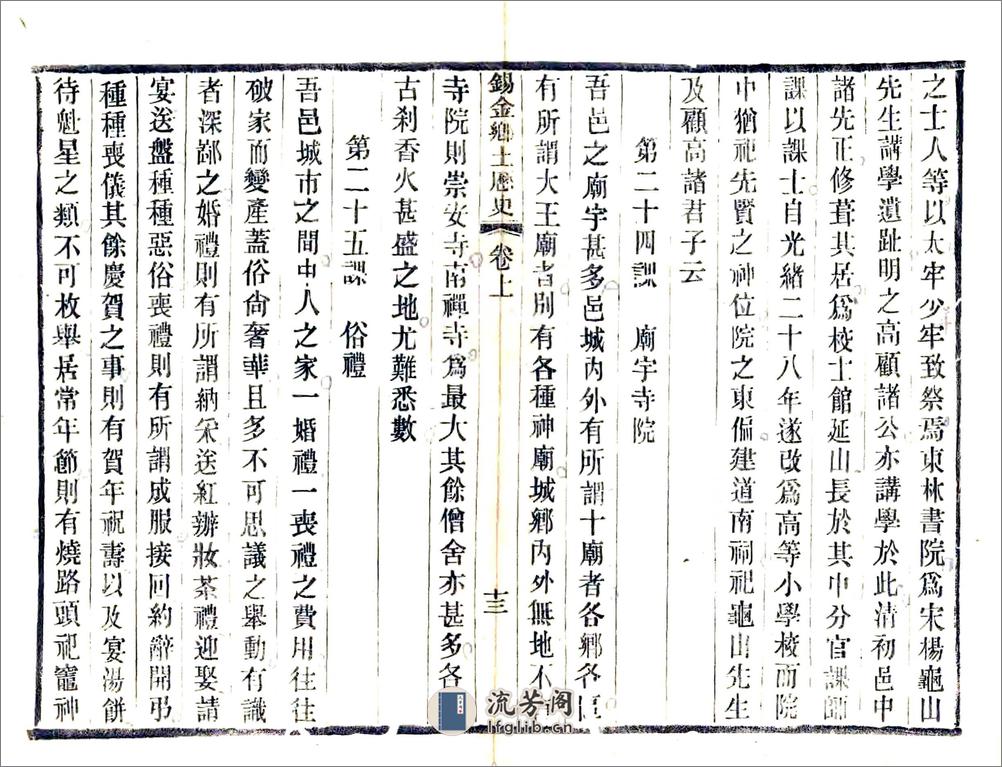 之士人等以太牢少牢致祭焉東林書院爲宋楊龜山
先生講學遺趾明之高顧諸公亦講學於此清初邑中
諸先正修葺其居爲校士館延山長於其中分官課師
課以課士自光緒二十八年遂改爲高等小學校而院
中猶祀先賢之神位院之東偏建道南祠祀龜山先生
及顧高諸君子云
第二十四課　廟宇寺院
吾邑之廟宇甚多邑城內外有所謂十廟者各鄉各
有所謂大王廟者別有各種神廟城鄉內外無地不
錫金鄉土歷史　卷上　十三
寺院則崇安寺南禪寺爲最大其餘僧舍亦甚多各
古刹香火甚盛之地尤難悉數
第二十五課　俗禮
吾邑城市之間中人之家一婚禮一喪禮之費用往往
破家而變產蓋俗尙奢華且多不可思議之舉動有識
者深鄙之婚禮則有所謂納采送紅辦妝茶禮迎娶請
宴送盤種種惡俗喪禮則有所謂成服接回約辭開弔
種種喪儀其餘慶賀之事則有賀年祝壽以及宴湯餅
待魁星之類不可枚舉居常年節則有燒路頭祀竈神
流芳阁
lfglib.cn